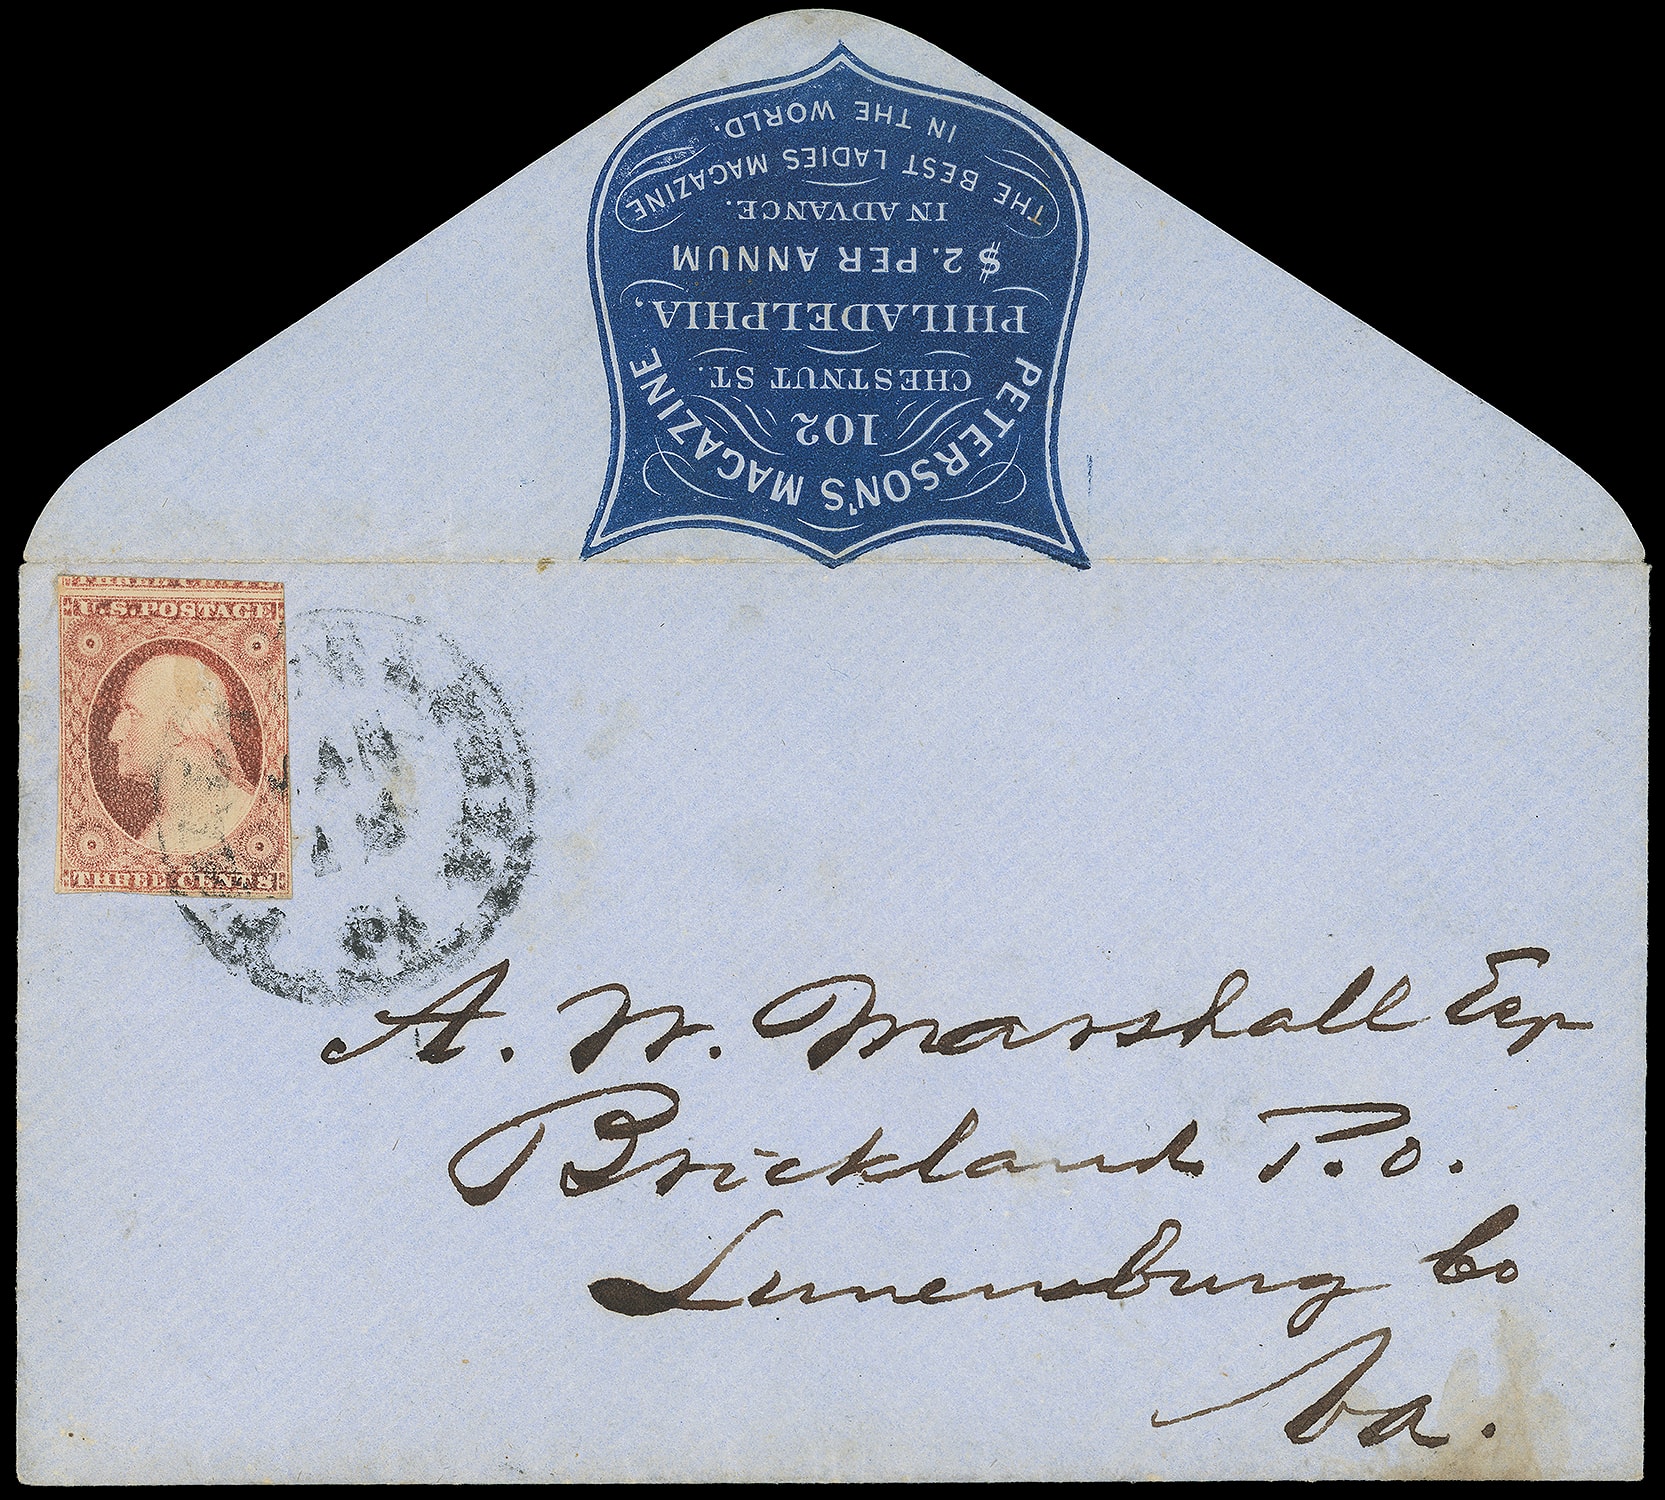 PETERSON'S MAGAZINE
102
CHESTNUT ST.
PHILADELPHIA,
$2. PER ANNUM
IN ADVANCE.
THE BEST LADIES MAGAZINE
IN THE WORLD.
U.S. POSTAGE
THREE CENTS
A. W. Marshall Esq
Brickland P.O.
Lunenburg Co
Va.